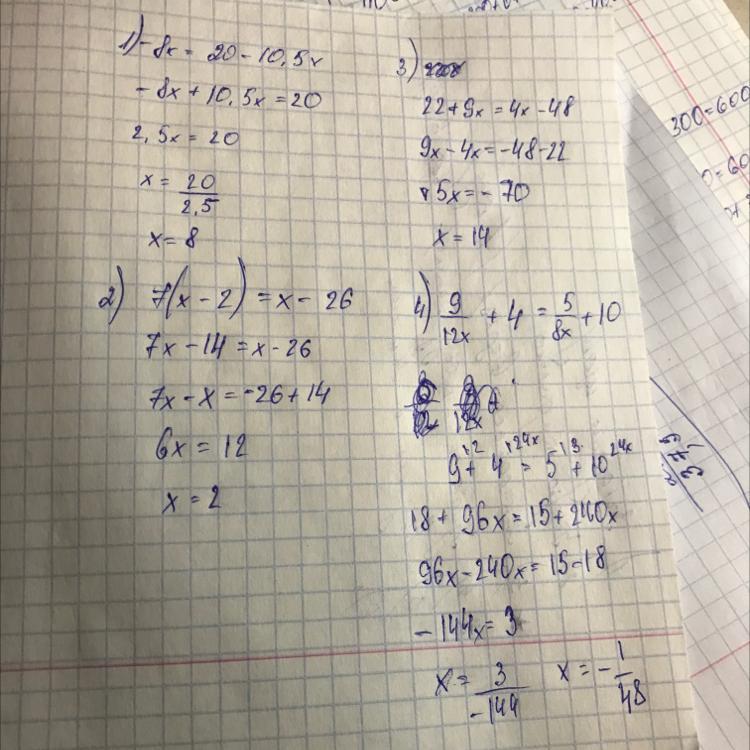 1) -8x = 20 - 10,5x
-8x + 10,5x = 20
2,5x = 20
x = 20/2,5
x = 8
2) 7(x - 2) = x - 26
7x - 14 = x - 26
7x - x = -26 + 14
6x = 12
x = 2
3)
22 + 9x = 4x - 48
9x - 4x = -48 - 22
5x = - 70
x = 14
4) 9/12x + 4 = 5/8x + 10
12x
9^12 + 4^124x = 5^13 + 10^24x
18 + 96x = 15 + 240x
96x - 240x = 15 - 18
- 144x = 3
x = 3/-144 x = - 1/48
300=600